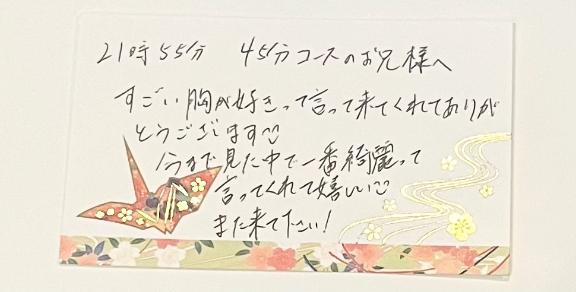 21時55分 45分コースのお兄様へ
すごい胸が好きって言って来てくれてありが
とうございます
今まで見た中で一番綺麗って
言ってくれて嬉しい
また来て下さい!